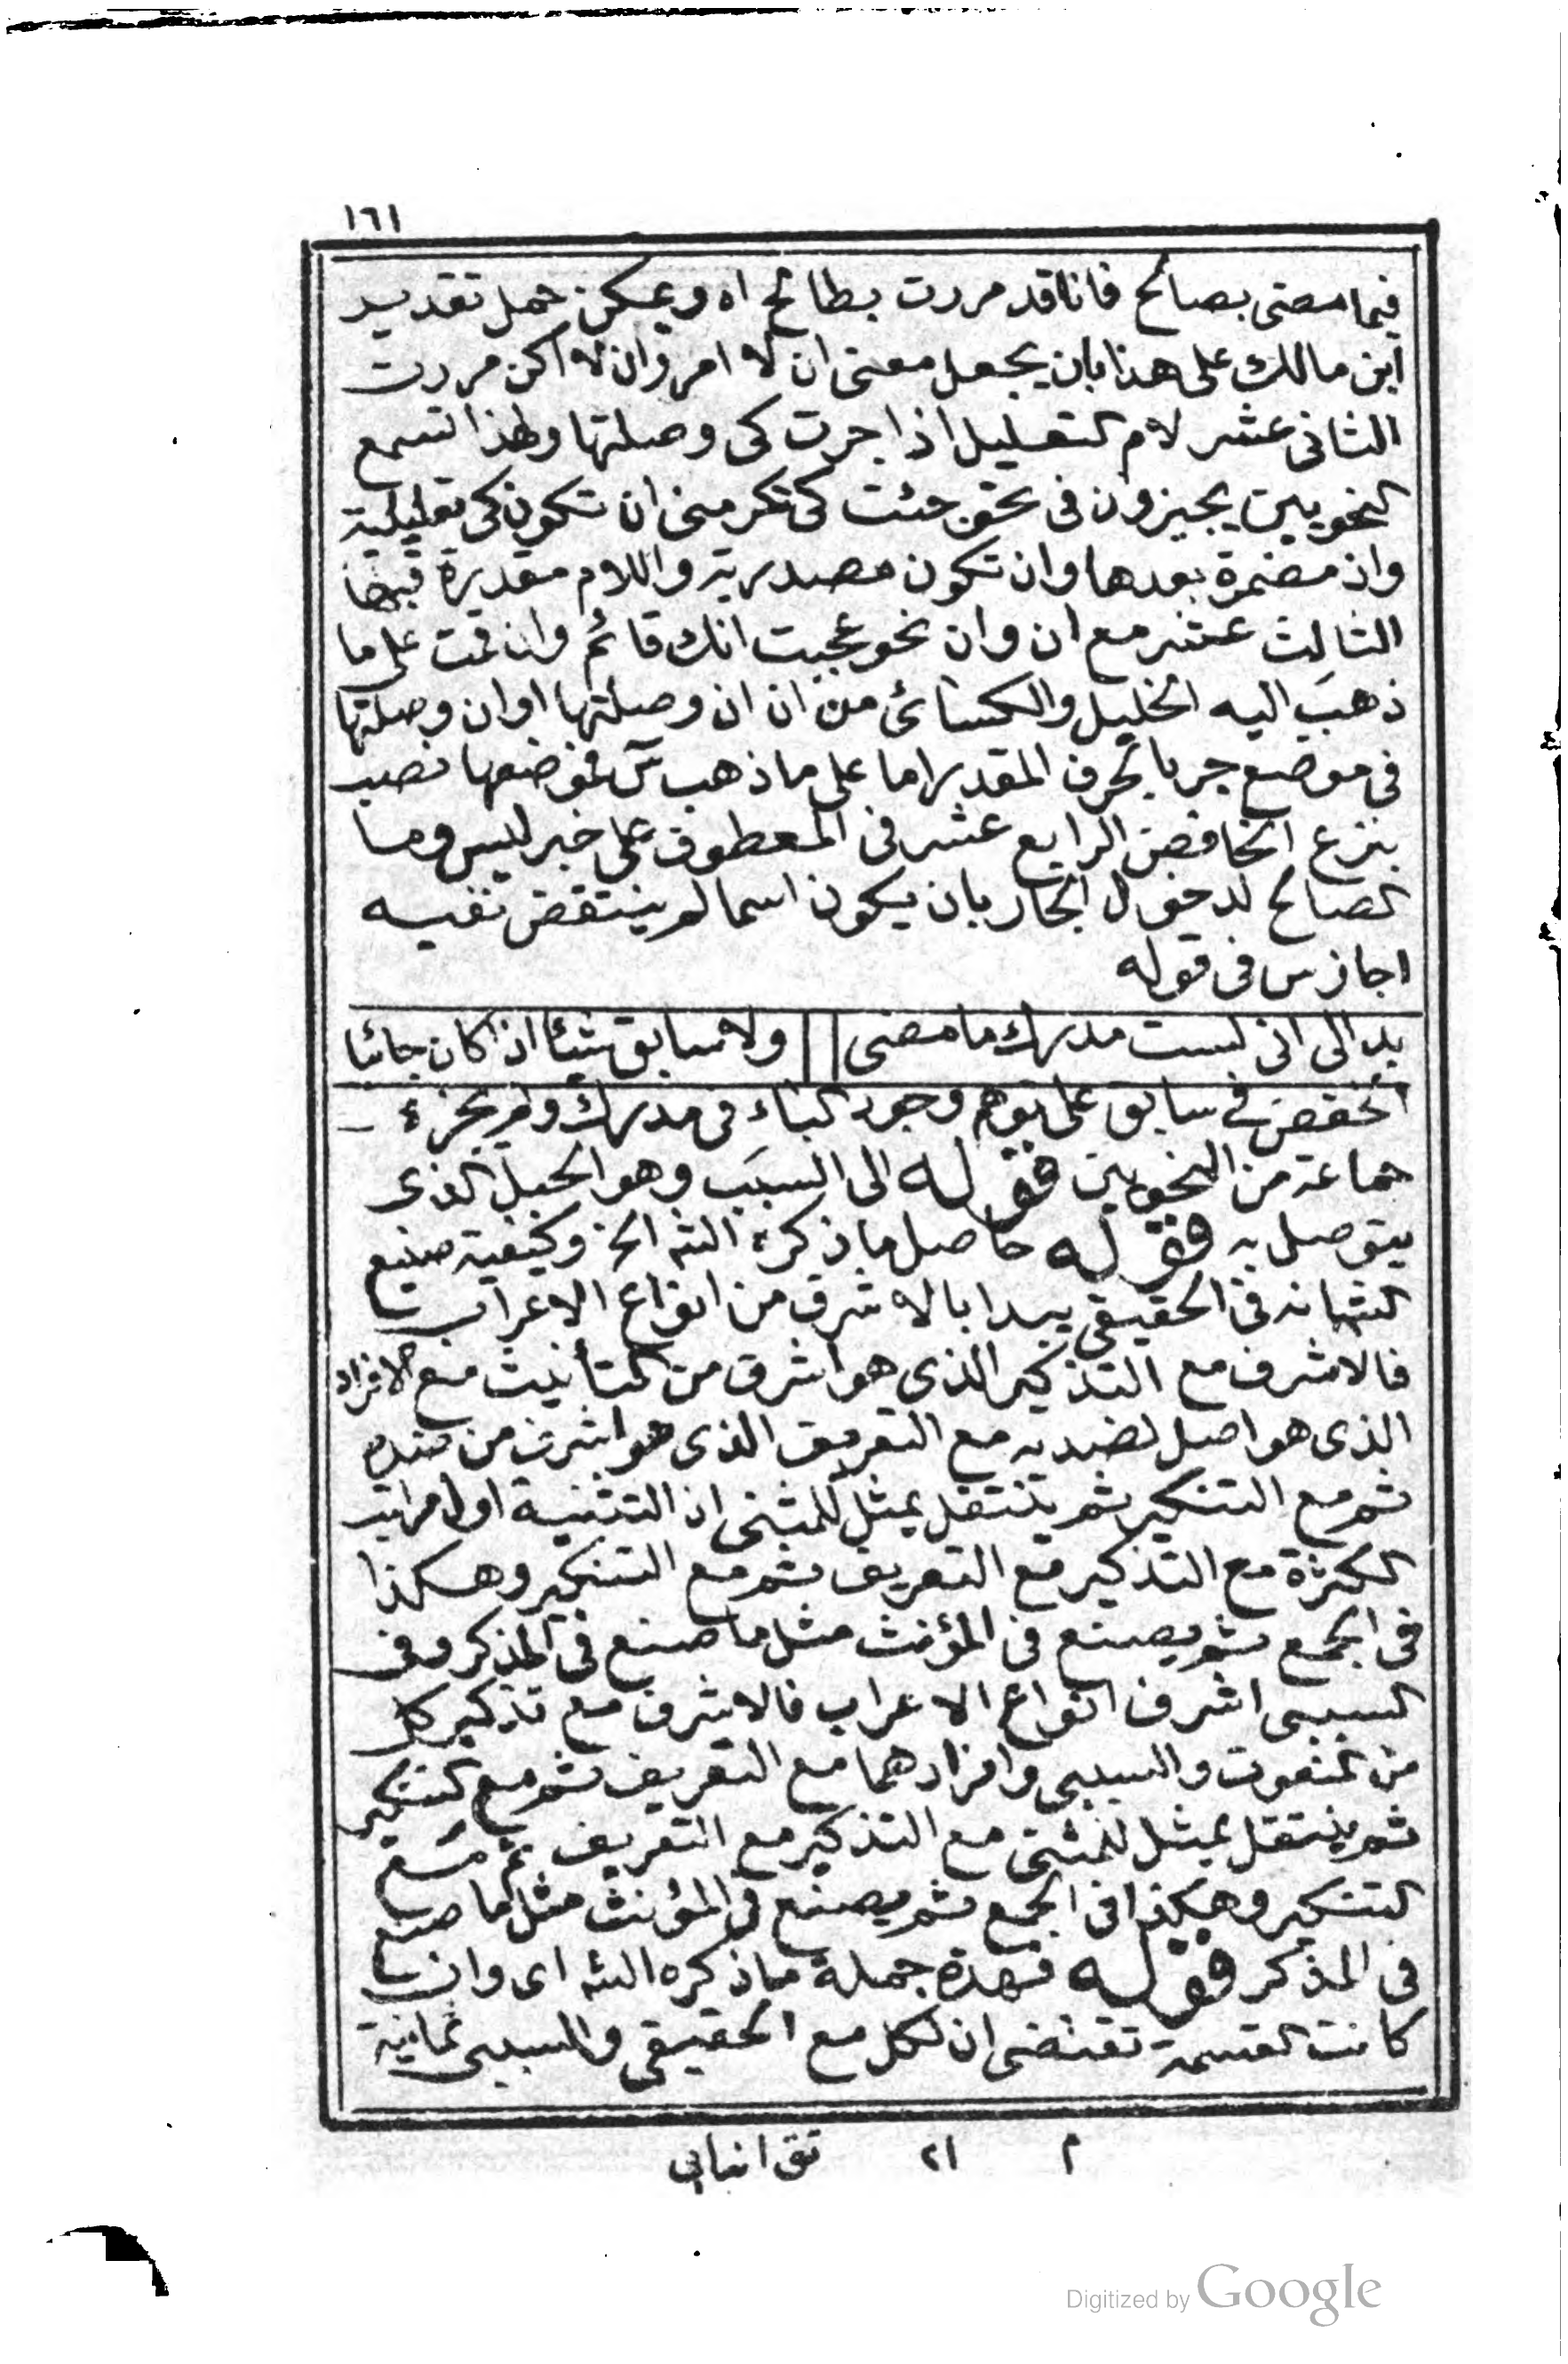 ١٦١
فيما مضى بصالح فانا قد مررت بطالح اه ويمكن حمل تقدير
ابن مالك على هذا بان يجعل معنى ان لا امر وان لا اكن مررت
الثانى عشر لام التعليل اذا جرت كى وصلتها ولهذا تسمع
النحويين يجيزون فى نحو جئت كى تكرمنى ان تكون كى تعليلية
وان مضمرة بعدها وان تكون مصدرية واللام مقدرة قبلها
الثالث عشر مع ان وان نحو عجبت انك قائم وان قمت على ما
ذهب اليه الخليل والكسائى من ان ان وصلتها او ان وصلتها
فى موضع جر بالحرف المقدر اما على ما ذهب س فموضعها نصب
بنزع الخافض الرابع عشر فى المعطوف على خبر ليس وما
الصالح لدخول الجار بان يكون اسما لم ينتقض نفيه
اجاز س فى قوله
بدا لى انى لست مدرك ما مضى || ولا سابق شيئا اذا كان جائيا
الخفض فى سابق على توهم وجود الباء فى مدرك ولم يجزه
جماعة من النحويين قوله الى السبب وهو الحبل الذى
يتوصل به قوله حاصل ما ذكره الشه الخ وكيفية صنيع
الشانه فى الحقيقى يبدا بالاشرف من انواع الاعراب
فالاشرف مع التذكير الذى هو اشرف من التأنيث مع الافراد
الذى هو اصل لضديه مع التعريف الذى هو اشرف من ضده
ثم مع التنكير ثم ينتقل بمثل للمثنى اذ التثنية اول مراتب
الكثرة مع التذكير مع التعريف ثم مع التنكير وهكذا
فى الجمع ثم يصنع فى المؤنث مثل ما صنع فى المذكر وفى
السببى اشرف انواع الاعراب فالاشرف مع تذكير كل
من المنعوت والسببى وافرادهما مع التعريف ثم مع التنكير
ثم ينتقل بمثل للمثنى مع التذكير مع التعريف ثم مع
التنكير وهكذا فى الجمع ثم يصنع فى المؤنث مثل ما صنع
فى المذكر قوله فهذه جملة ما ذكره الشه اى وان
كانت القسمة تقتضى ان لكل مع الحقيقى والسببى ثمانية
م ٢١ تق انبابى
Digitized by Google